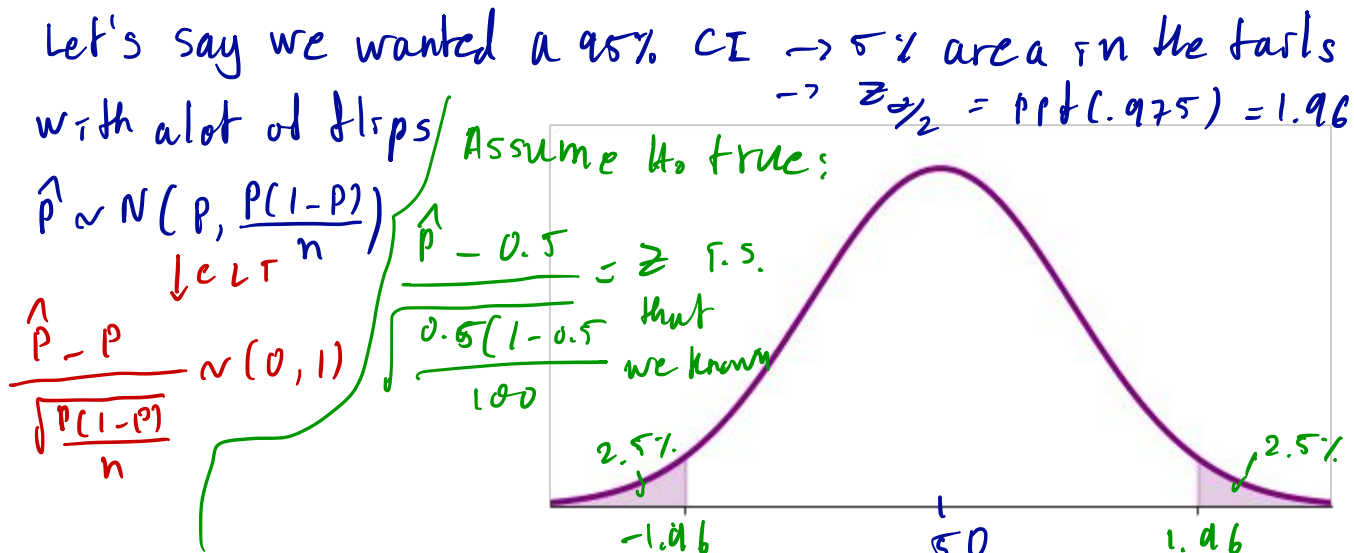 Let's say we wanted a 95% CI → 5% area in the tails
→ z_{α/2} = ppf(.975) = 1.96
with alot of flips
p̂ ~ N(p, p(1-p)/n)
↓ CLT
(p̂ - p)/√(p(1-p)/n) ~ (0, 1)
Assume H₀ true:
(p̂ - 0.5)/√(0.5(1-0.5/100) = z T.S.
that
we know
2.5%
2.5%
-1.96
50
1.96